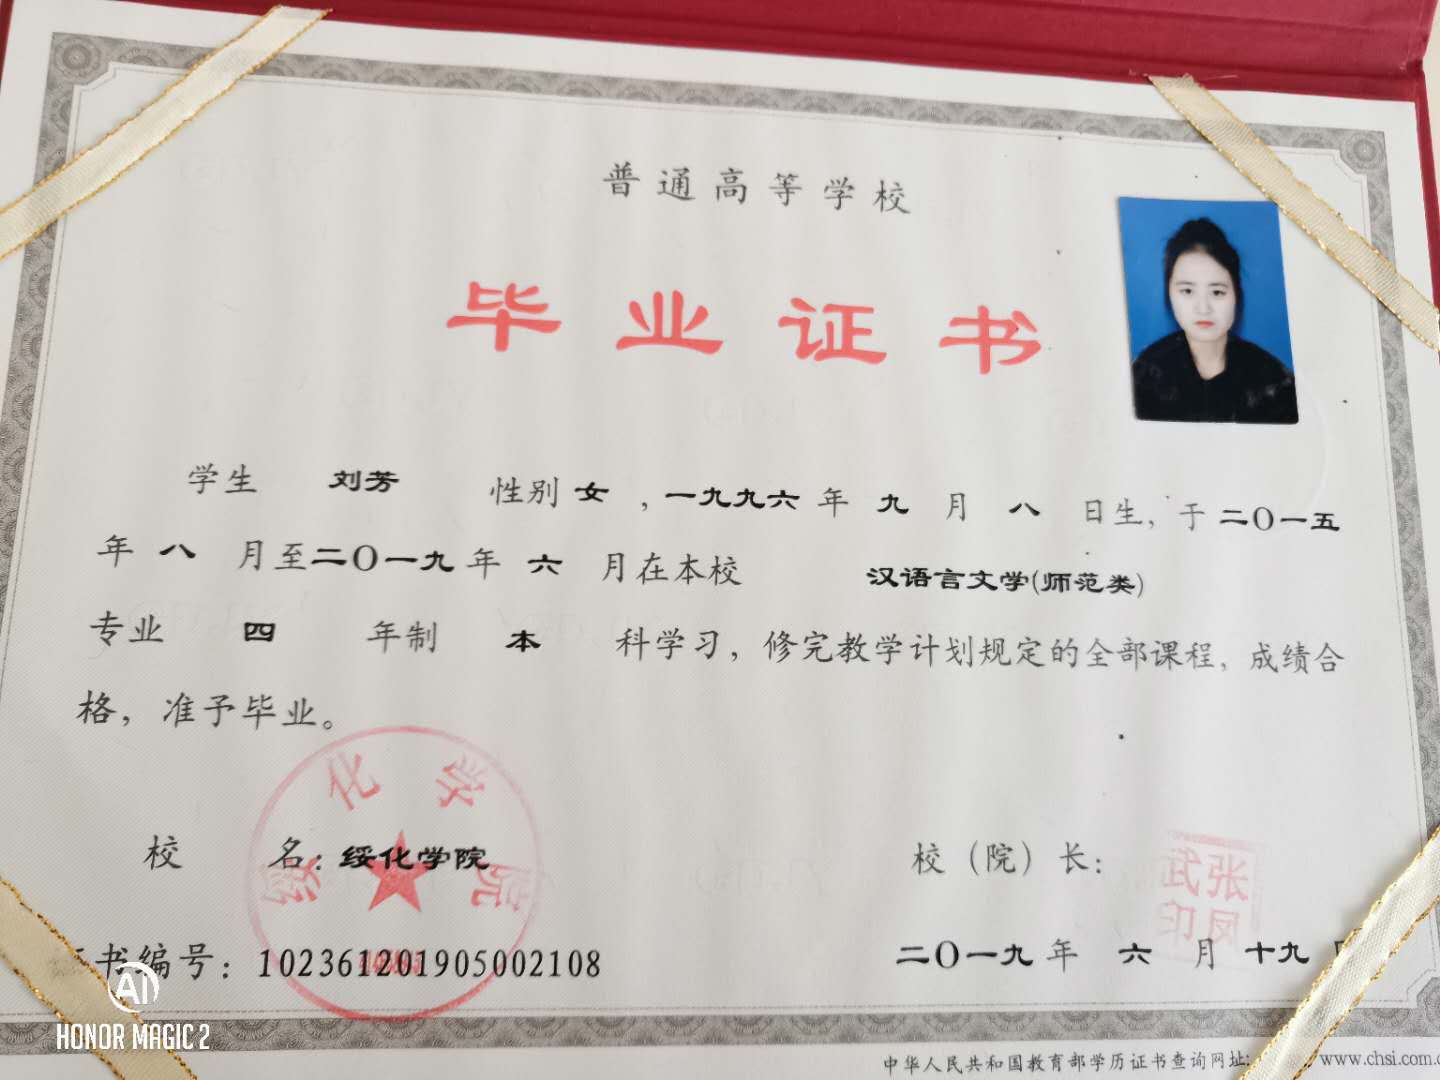 普通高等学校
毕业证书
学生 刘芳 性别 女 ,一九九六 年 九 月 八 日生, 于 二〇一五
年 八 月至二〇一九 年 六 月在本校 汉语言文学(师范类)
专业 四 年制 本 科学习, 修完教学计划规定的全部课程, 成绩合
格, 准予毕业。
绥化学院
校 名: 绥化学院
校（院）长:
张凤武印
证书编号: 102361201905002108
二〇一九 年 六 月 十九 日
AI
HONOR MAGIC 2
中华人民共和国教育部学历证书查询网址: www.chsi.com.c